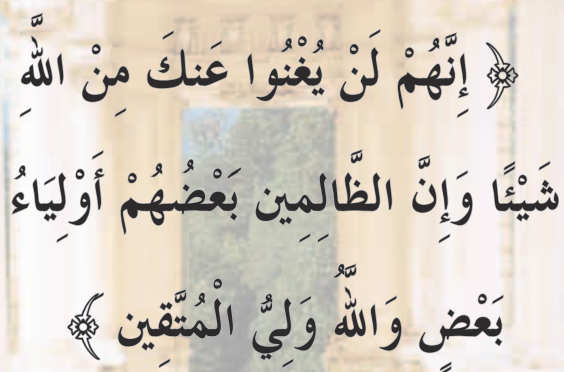 ﴿ إِنَّهُمْ لَنْ يُغْنُوا عَنكَ مِنْ اللَّهِ
شَيْئًا وَإِنَّ الظَّالِمِين بَعْضُهُمْ أَوْلِيَاءُ
بَعْضٍ وَاللَّهُ وَلِيُّ الْمُتَّقِين ﴾